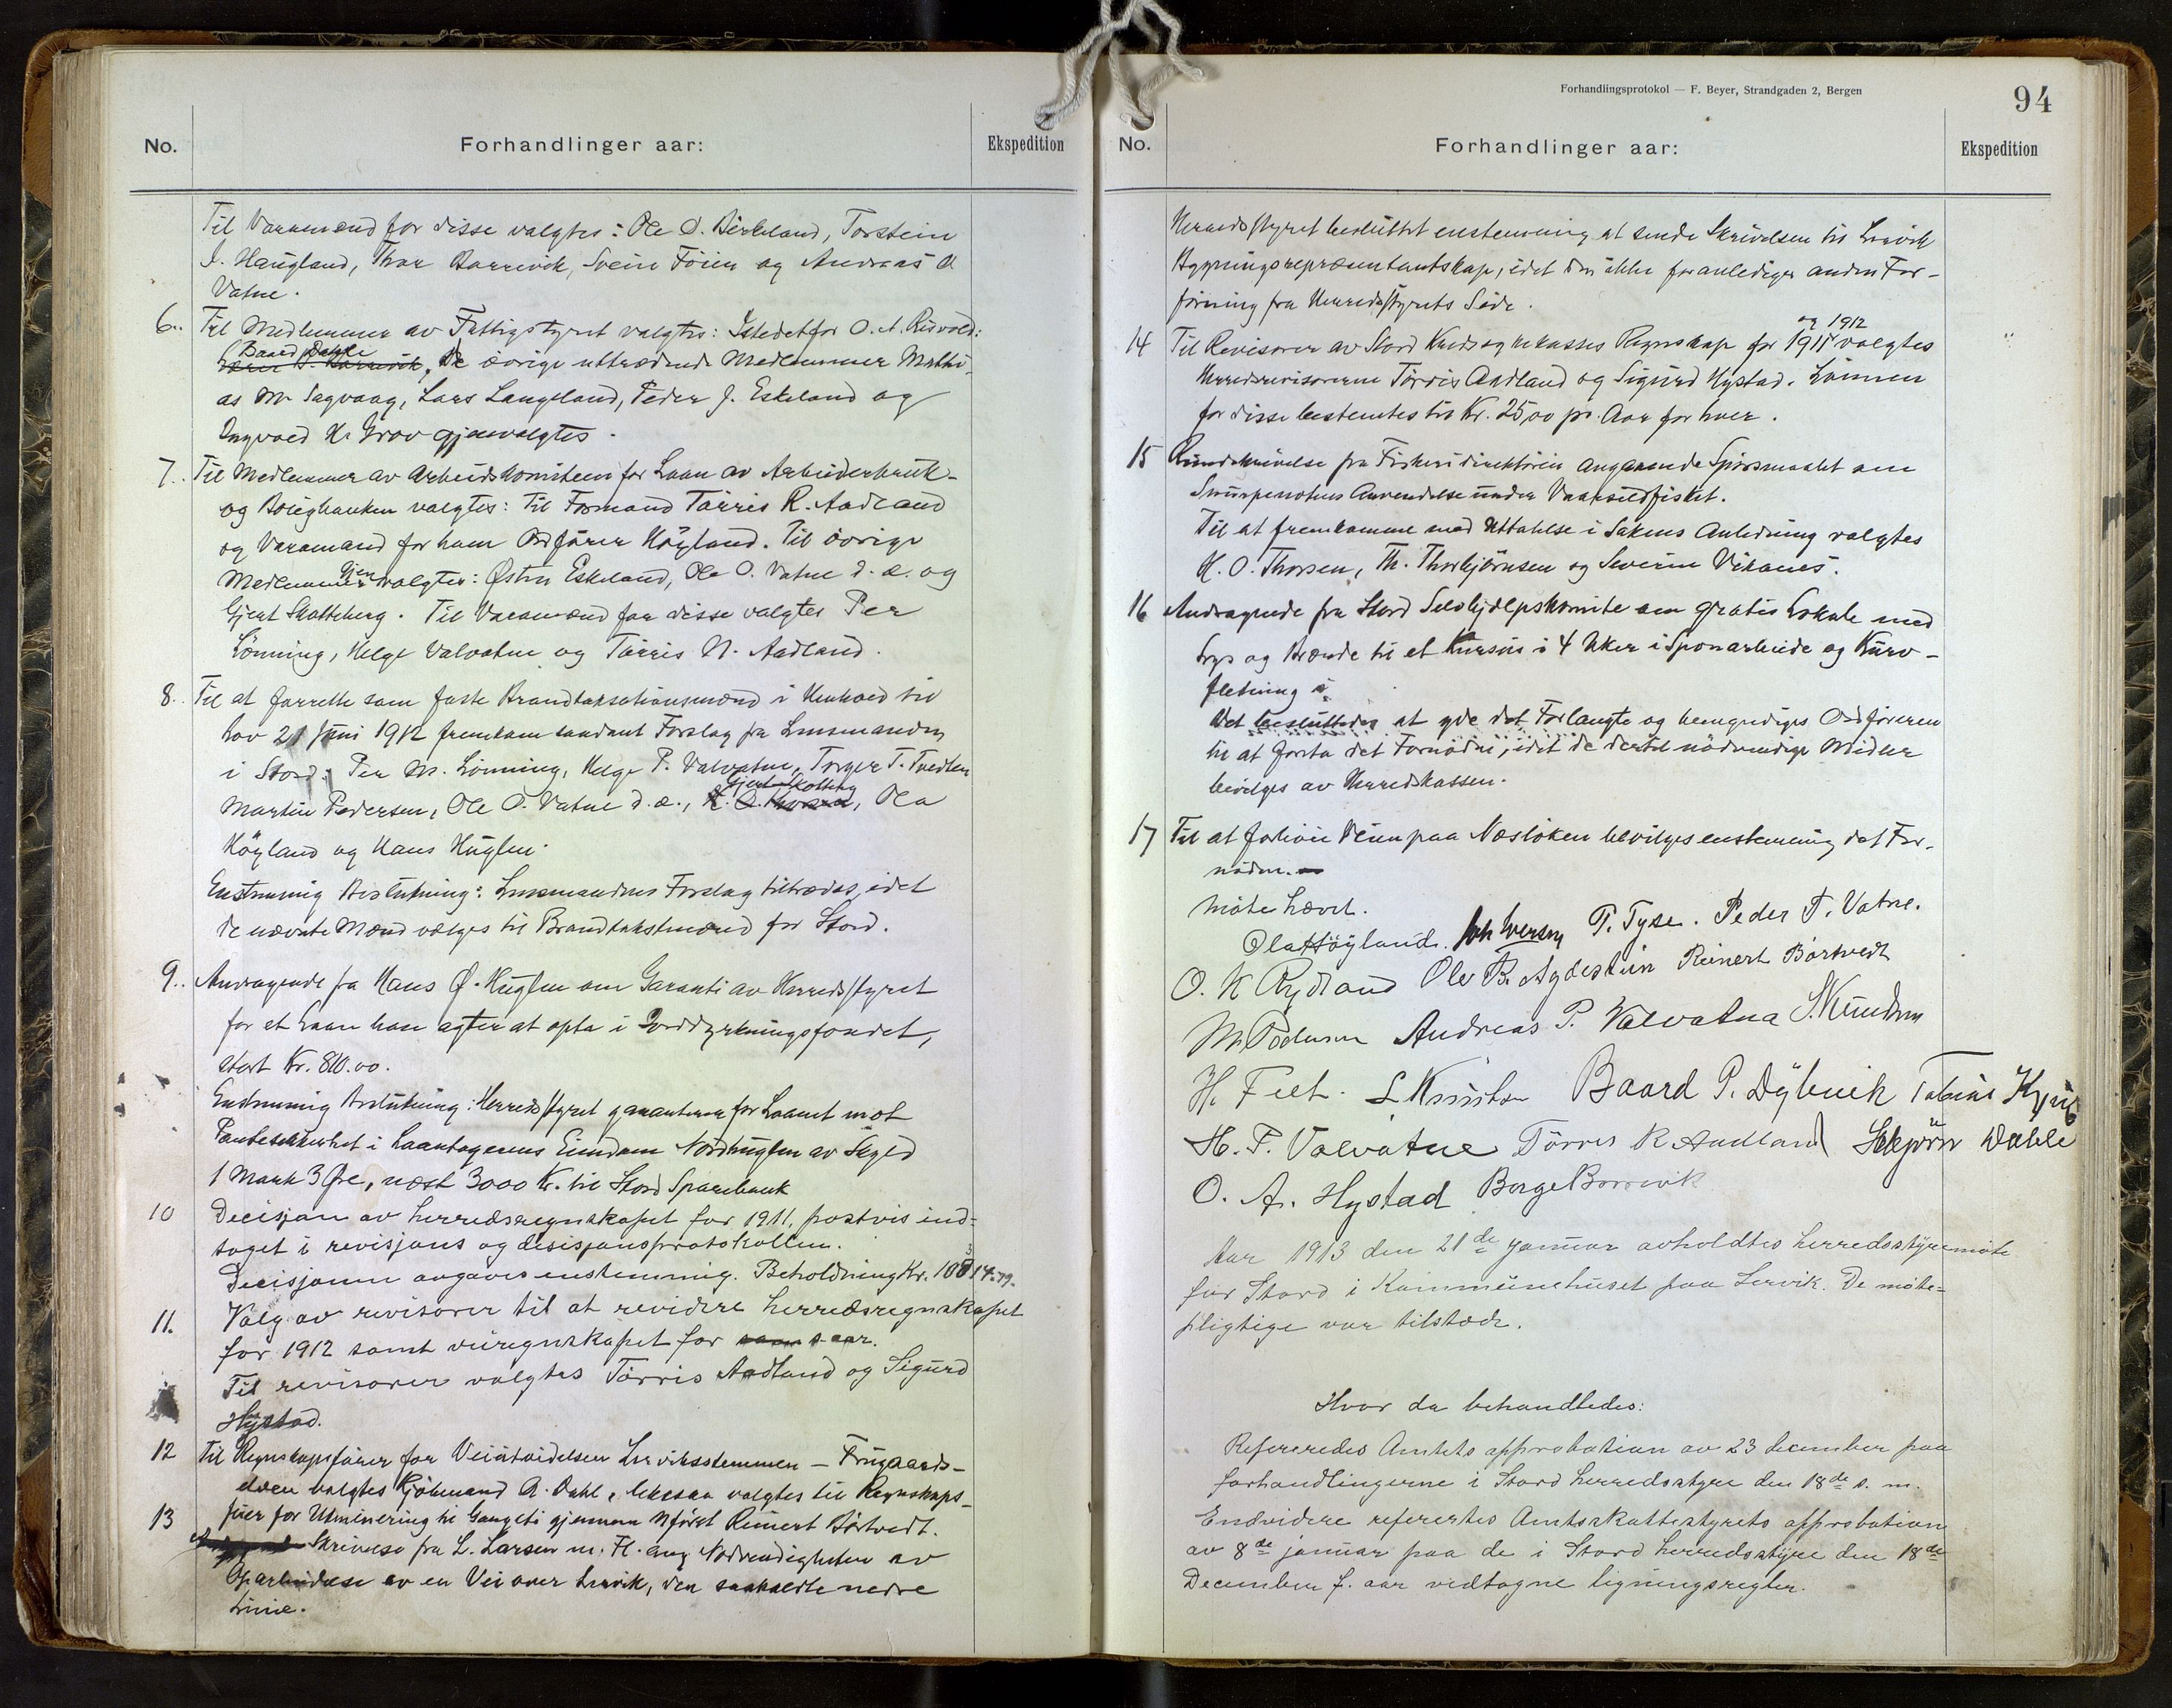 No.
Forhandlinger aar:
Ekspedition
Til Varamænd for disse valgtes: Ole O. Birkeland, Torstein
I. Haugland, Thor Borrevik, Svein Föien og Andreas A
Vatne.
6. Til Medlemmer av Fattigstyret valgtes: Istedetfor O. A. Risvold:
Baard Dahle
De övrige uttrædende Medlemmer Mathi-
as M. Sagvaag, Lars Langeland, Peder J. Eskeland og
Ingvald H. Grov gjenvalgtes.
7. Til Medlemmer av Arbeidskomiteen for Laan av Arbeiderbruk-
og Boligbanken valgtes: til Formand Törris R. Aadland
og Varamand for ham Ordförer Höyland. Til övrige
Medlemmer gjenvalgtes: Østen Eskeland, Ole O. Vatne d. æ. og
Gjert Skotteberg. Til Varamænd for disse valgtes Per
Lönning, Helge Valvatne og Törris N. Aadland.
8. Til at forrette som faste Brandtaksationsmænd i Henhold til
Lov 21 Juni 1912 fremkom saadant Forslag fra Lensmanden
i Stord: Per M. Lönning, Helge P. Valvatne, Torger T. Tvedten
Martin Pedersen, Ole O. Vatne d. æ., Gjert Skotteberg K. O. Thorsen, Ola
Höyland og Hans Huglen.
Enstemmig Beslutning: Lensmandens Forslag tiltrædes, idet
de nævnte Mænd vælges til Brandtakstmænd for Stord.
9. Andragende fra Hans Ø. Huglen om Garanti av Herredsstyret
for et Laan han agter at opta i Jorddyrkningsfondet,
stort Kr. 810.00.
Enstemmig Beslutning: Herredsstyret garanterer for Laanet mot
Pantesikkerhet i Laantagerens Eiendom Nordhuglen av Skyld
1 Mark 3 Øre, næst 3000 Kr. til Stord Sparebank
10 Decisjon av herredsregnskapet for 1911, postvis ind-
taget i revisjons og desisjonsprotokollen.
Decisjonen avgaves enstemmig. Beholdning Kr. 10314.79.
11. Valg av revisorer til at revidere herredsregnskapet
for 1912 samt veiregnskapet for s. aar.
Til revisorer valgtes Törris Aadland og Sigurd
Hystad.
12 Til Regnskapsförer for Veiutvidelsen Lerviksstemmen — Frugaards-
elven valgtes Kjöbmand A. Dahl, likesaa valgtes til Regnskaps-
förer for Utminering til Gangsti gjennem Uföret Reinert Börtvedt.
13 Skrivelse fra L. Larsen m. Fl. ang. Nödvendigheten av
Oparbeidelse av en Vei over Lervik, den saakaldte nedre
Linie.
Forhandlingsprotokol — F. Beyer, Strandgaden 2, Bergen
94
No.
Forhandlinger aar:
Ekspedition
Herredsstyret besluttet enstemmig at sende Skrivelsen til Lervik
Bygningsrepræsentantskap, idet den ikke foranlediger anden For-
föining fra Herredsstyrets Side.
og 1912
14 Til Revisorer av Stord Kredssykekasses Regnskap for 1911 valgtes
Herredsrevisorerne Törris Aadland og Sigurd Hystad. Lönnen
for disse bestemtes til Kr. 25,00 pr. Aar for hver.
15 Rundskrivelse fra Fiskeridirektören angaaende Spörsmaalet om
Snurpenotens Anvendelse under Vaarsildfisket.
Til at fremkomme med Uttalelse i Sakens Anledning valgtes
K. O. Thorsen, Th. Thorbjörnsen og Severin Vikanes.
16 Andragende fra Stord Selvhjælpskomite om gratis Lokale med
Lys og Brænde til et Kursus i 4 Uker i Sponarbeide og Kurv-
fletning
Det besluttedes at yde det Forlangte og bemyndiges Ordföreren
til at forsta det Fornödne, idet de dertil nödvendige Midler
bevilges av Herredskassen.
17 Til at forböie Veien paa Næsloken bevilges enstemmig det For-
nödne.
Möte hævet.
Ola Höyland. Joh Iversen P. Tyse. Peder T. Vatne.
O. K Rydland Ole B. Agdestein Reinert Börtvedt
M Pedersen Andreas P. Valvatna S. Knudsen
H. Felt. L Knutsen Baard P. Dÿbvik Tobias Kyvig
H. P. Valvatne Törris R Aadland Asbjörn Dahle
O. A. Hystad Borge Borrevik
Aar 1913 den 21de januar avholdtes herredsstyremöte
for Stord i Kommunehuset paa Lervik. De möte-
pligtige var tilstede.
Hvor da behandledes:
Refereredes Amtets approbation av 23 december paa
forhandlingerne i Stord herredsstyre den 18de s. m.
Endvidere referertes Amtsskattestyrets approbation
av 8de januar paa de i Stord herredsstyre den 18de
December f. aar vedtagne ligningsregler.